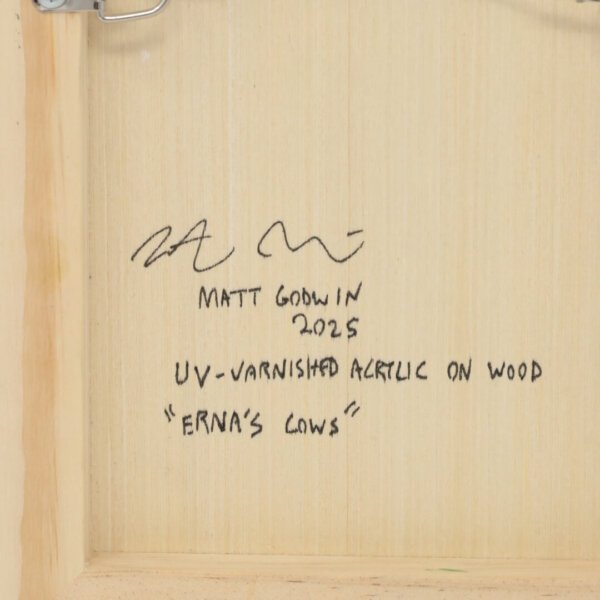 MATT GODWIN
2025
UV-VARNISHED ACRYLIC ON WOOD
"ERNA'S COWS"